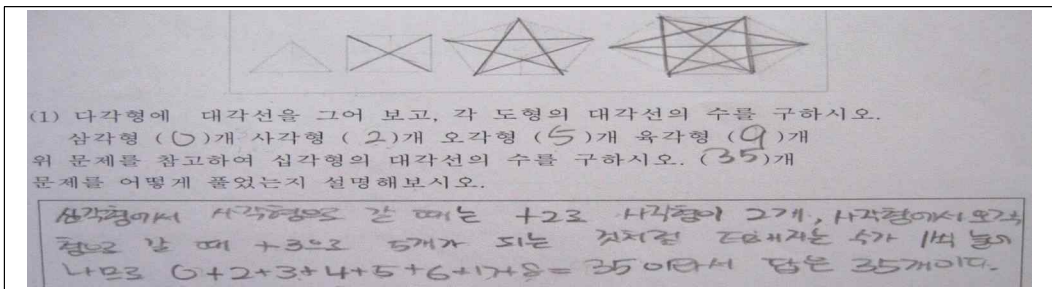 (1) 다각형에 대각선을 그어 보고, 각 도형의 대각선의 수를 구하시오.
삼각형 (0)개 사각형 (2)개 오각형 (5)개 육각형 (9)개
위 문제를 참고하여 십각형의 대각선의 수를 구하시오. (35)개
문제를 어떻게 풀었는지 설명해보시오.
삼각형에서 사각형으로 갈 때는 +2로 사각형이 2개, 사각형에서 오각
형으로 갈 때 +3으로 5개가 되는 것처럼 더해지는 수가 1씩 늘어
나므로 0+2+3+4+5+6+7+8=35이라서 답은 35개이다.